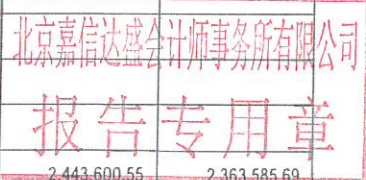 北京嘉信达盛会计师事务所有限公司
报告专用章
2,443,600.55 2,363,585.69